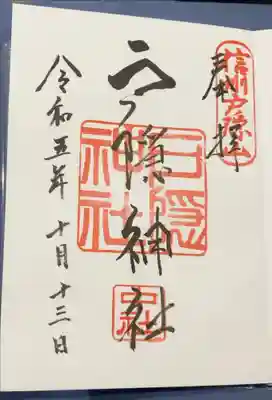 信州戸隠山
奉拝
戸隠神社
戸隠
神社
中社
令和五年 十月十三日